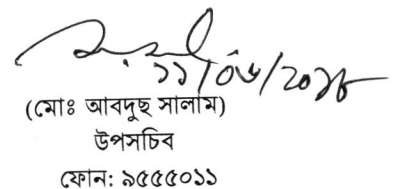 ১১/০৬/২০১৮
(মোঃ আবদুছ সালাম)
উপসচিব
ফোন: ৯৫৫৫০১১